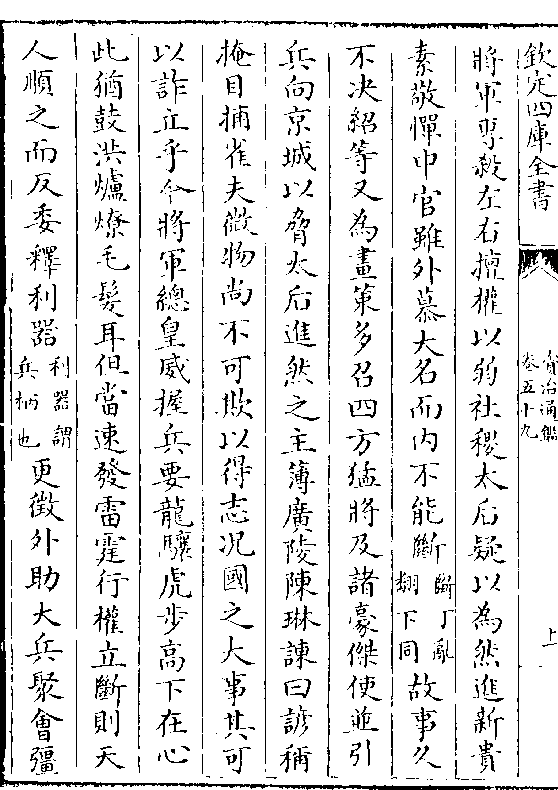 欽定四庫全書
資治通鑑
卷五十九
上
將軍專殺左右擅權以弱社稷太后疑以為然進新貴
素敬憚中官雖外慕大名而内不能斷斷丁亂翻下同故事久
不决紹等又為畫策多召四方猛將及諸豪傑使並引
兵向京城以脅太后進然之主簿廣陵陳琳諫曰諺稱
掩目捕雀夫微物尚不可欺以得志况國之大事其可
以詐立乎今將軍總皇威握兵要龍驤虎步高下在心
此猶鼓洪爐燎毛髮耳但當速發雷霆行權立斷則天
人順之而反委釋利器利器謂兵柄也更徵外助大兵聚會彊